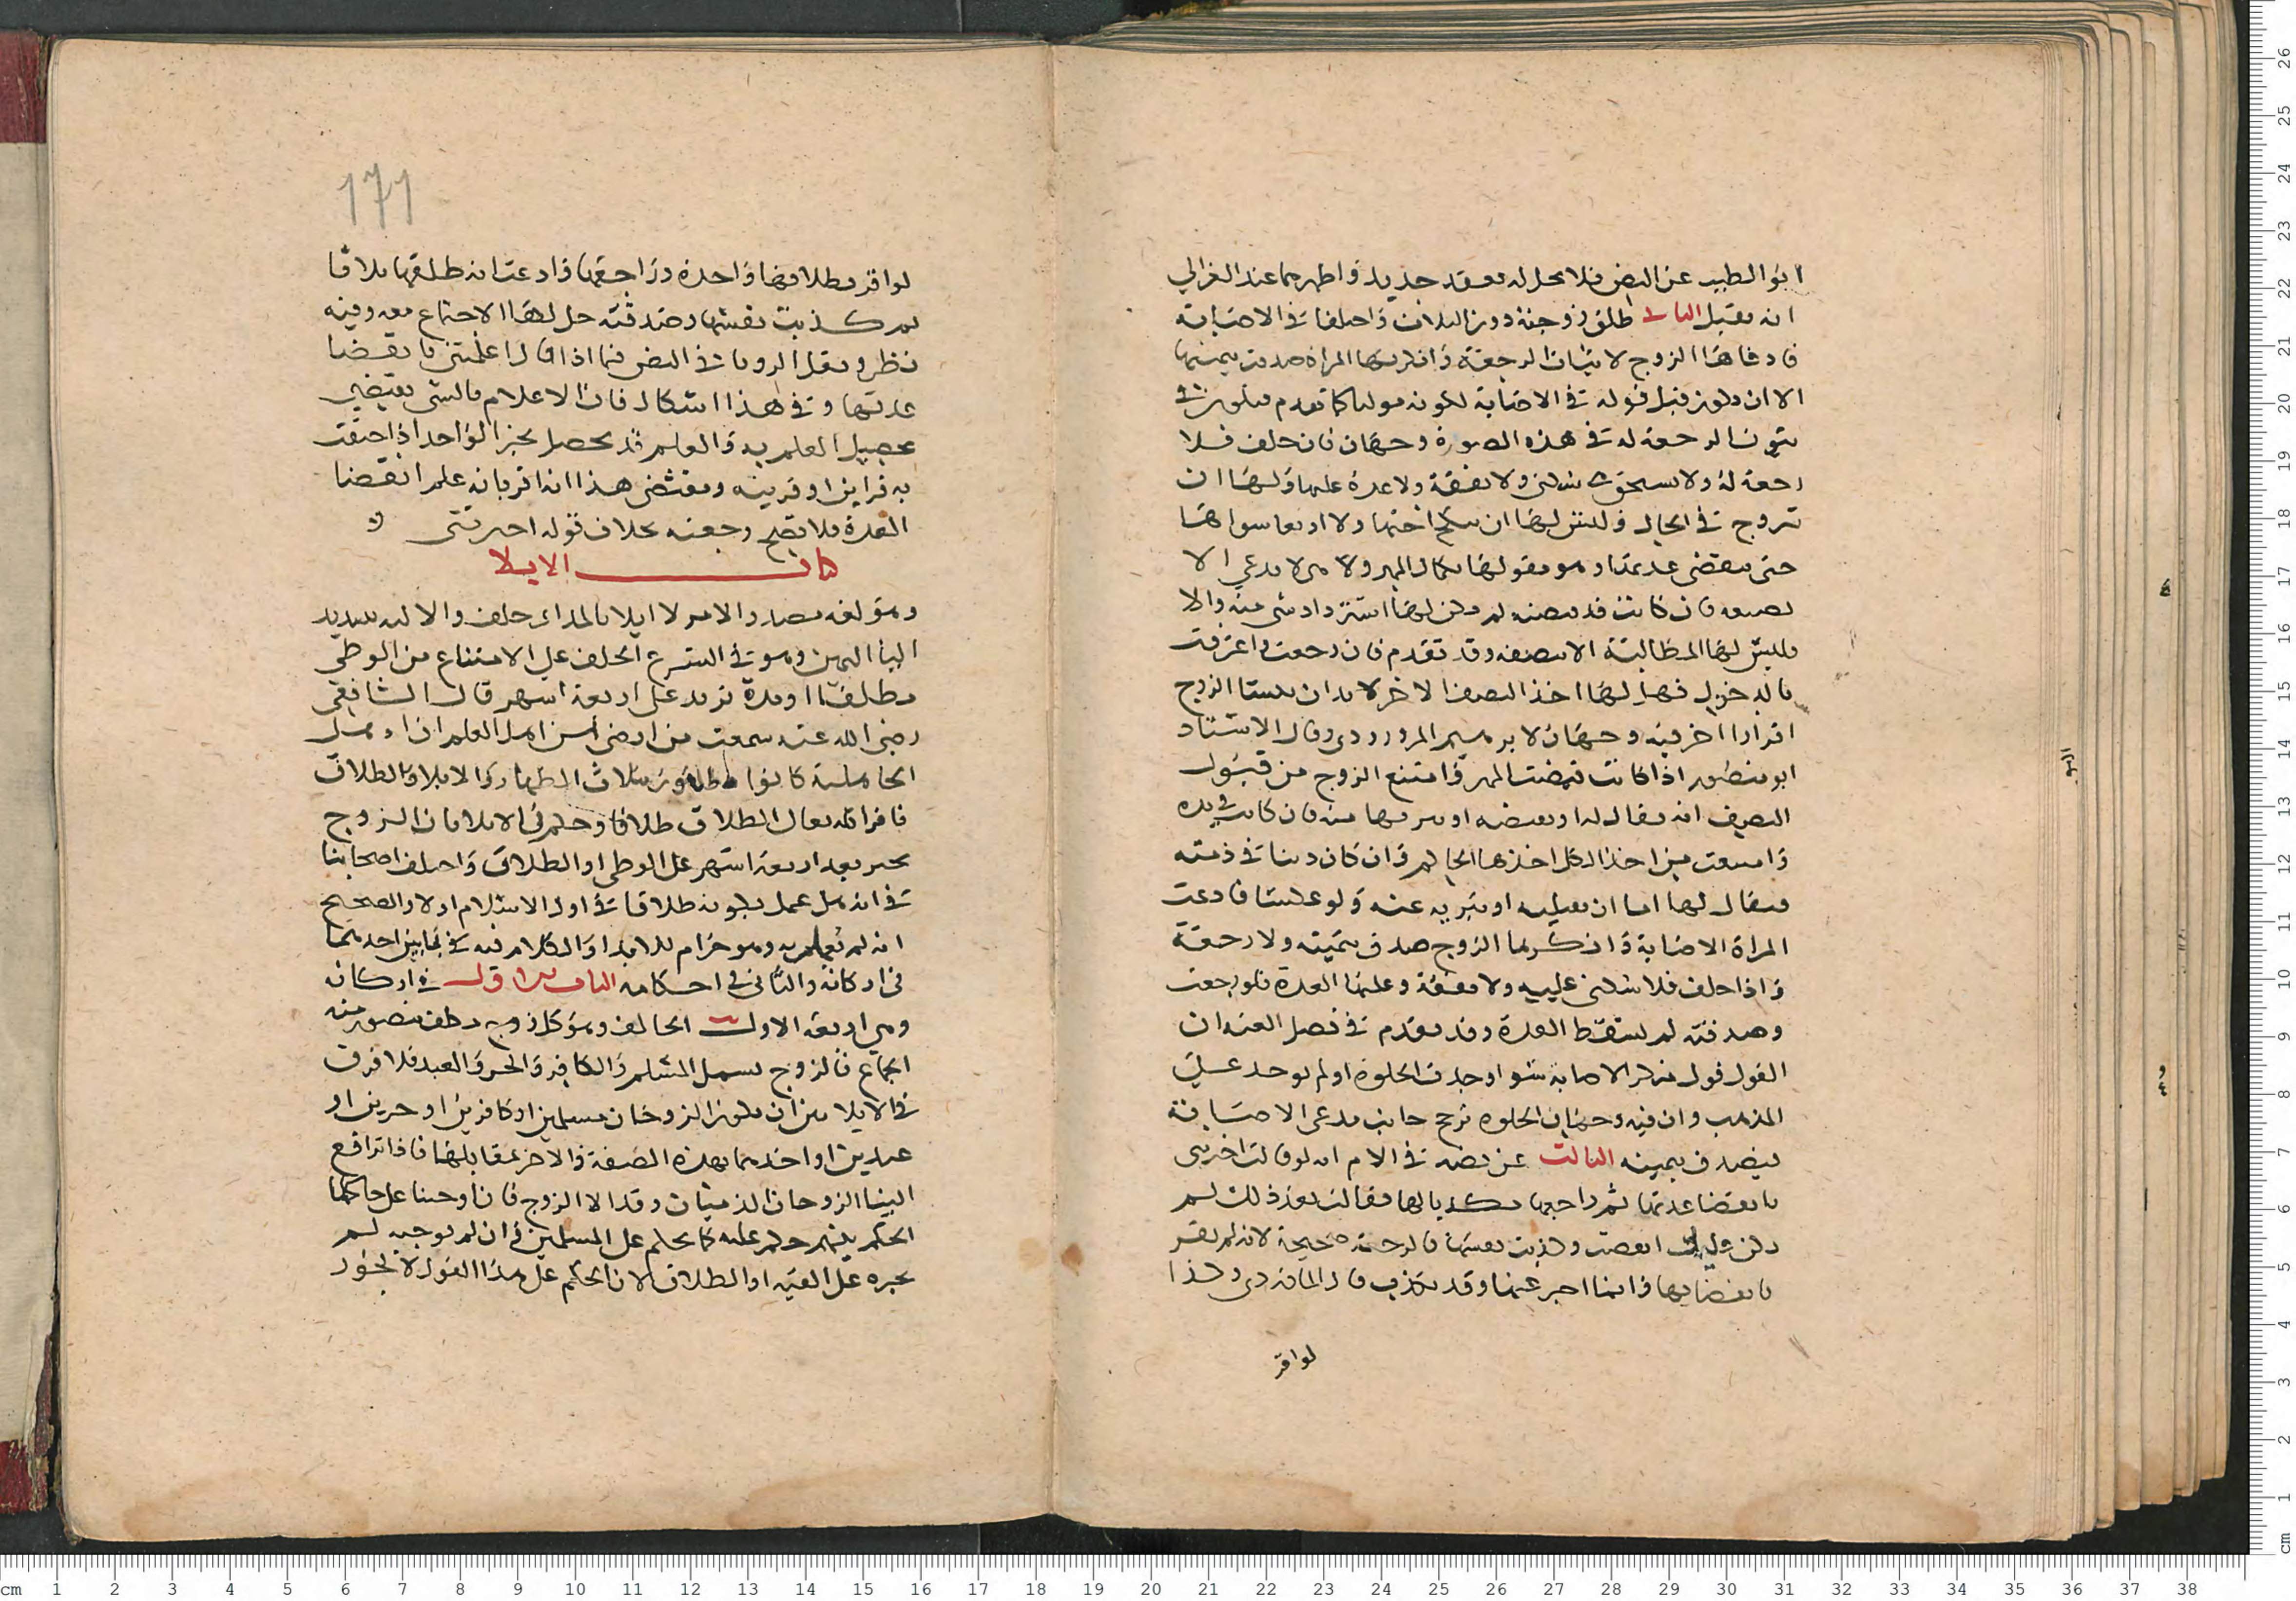 ابو الطيب عن النص فلا يحل له بعقد جديد واظهرهما عند الغزالي
انه يقبل الثاني طلق زوجته دون الثلاث واختلفا في الاصابة
فادعاها الزوج لاثبات الرجعة وانكرتها المراة صدقت بيمينها
الا ان يكون قبل قوله في الاصابة لكونه موليا كما تقدم فيكون في
ثبوت الرجعة له في هذه الصورة وجهان فان حلفت فلا
رجعة له ولا تستحق سكنى ولا نفقة ولا عدة عليها ولها ان
تتزوج في الحال وليس لها ان ينكح اختها ولا اربعا سواها
حتى تنقضي عدتها وهو مقر لها بكمال المهر وهي لا تدعي الا
نصفه فان كانت قد قبضته لم يكن له استرداد شي منه والا
فليس لها المطالبة الا بنصفه وقد تقدم فان رجعت واعترفت
بالدخول فهل لها اخذ النصف الاخر لا بد ان يستانف الزوج
اقرارا اخر فيه وجهان لابراهيم المروروذي وقال الاستاذ
ابو منصور اذا كانت قبضت المهر وامتنع الزوج من قبول
النصف انه يقال له اما ان تقبضه او تبريها منه فان كانت في يده
وامتنعت من اخذ الكل اخذها الحاكم وان كان دينا في ذمته
فيقال لها اما ان تقبليه او تبريه عنه ولو عكسنا فادعت
المراة الاصابة وانكرها الزوج صدق بيمينه ولا رجعة
واذا حلف فلا سكنى عليه ولا نفقة وعليها العدة فلو رجعت
وصدقته لم تسقط العدة وقد تقدم في فصل العنة ان
القول قول منكر الاصابة سوا وجدت الخلوة او لم توجد على
المذهب وان فيه وجها ان الخلوة ترجح جانب مدعي الاصابة
فيصدق بيمينه الثالث عن نصه في الام انه لو قالت اخبرتني
بانقضا عدتها ثم راجعها مكذبا لها فقالت بعد ذلك لم
تكن عدتي انقضت وكذبت نفسها فالرجعة صحيحة لانه لم يقر
بانقضايها وانما اخبر عنها وقد تكذب قال الماوردي وكذا
لو اقر
١٦٦
لو اقر بطلاقها واحدة وراجعها وادعت انه طلقها ثلاثا
ثم كذبت نفسها وصدقته حل لها الاجتماع معه وفيه
نظر ونقل الروياني في النص فيما اذا قال اعلمتني بانقضا
عدتها و في هذا اشكال فان الاعلام بالشي يقتضي
تحصيل العلم به والعلم قد يحصل بخبر الواحد اذا احتفت
به قراين او قرينة ومقتضى هذا انه اقر بانه علم انقضا
العدة فلا تصح رجعته بخلاف قوله اخبرتني
كتاب الايلا
وهو لغة مصدر والامر لا ايلا بالمد اي حلف والالية بتشديد
اليا اليمين وهو في الشرع الحلف على الامتناع من الوطي
مطلقا او مدة تزيد على اربعة اشهر قال الشافعي
رضي الله عنه سمعت من ارضى من اهل العلم ان اهل
الجاهلية كانوا يطلقون بثلاث الظهار والايلا والطلاق
فاقر الله تعالى الطلاق طلاقا وحكم في الايلا بان الزوج
يخير بعد اربعة اشهر على الوطي او الطلاق واختلف اصحابنا
في انه هل عمل بكونه طلاقا في اول الاسلام او لا والصحيح
انه لم يعمل به وهو حرام للايذا والكلام فيه في بابين احدهما
في اركانه والثاني في احكامه الباب الاول في اركانه
وهي اربعة الاول الحالف وهو كل زوج مكلف متصور منه
الجماع فالزوج يشمل المسلم والكافر والحر والعبد فلا فرق
في الايلا بين ان يكون الزوجان مسلمين او كافرين او حرين او
عبدين او احدهما بهذه الصفة والاخر بمقابلها فاذا ترافع
الينا الزوجان الذميان وقد الا الزوج فان اوجبنا على حاكمنا
الحكم بينهم حكم عليه كما يحكم على المسلمين وان لم نوجبه لم
يجبره على الفية او الطلاق لان الحكم على هذا القول لا يجوز